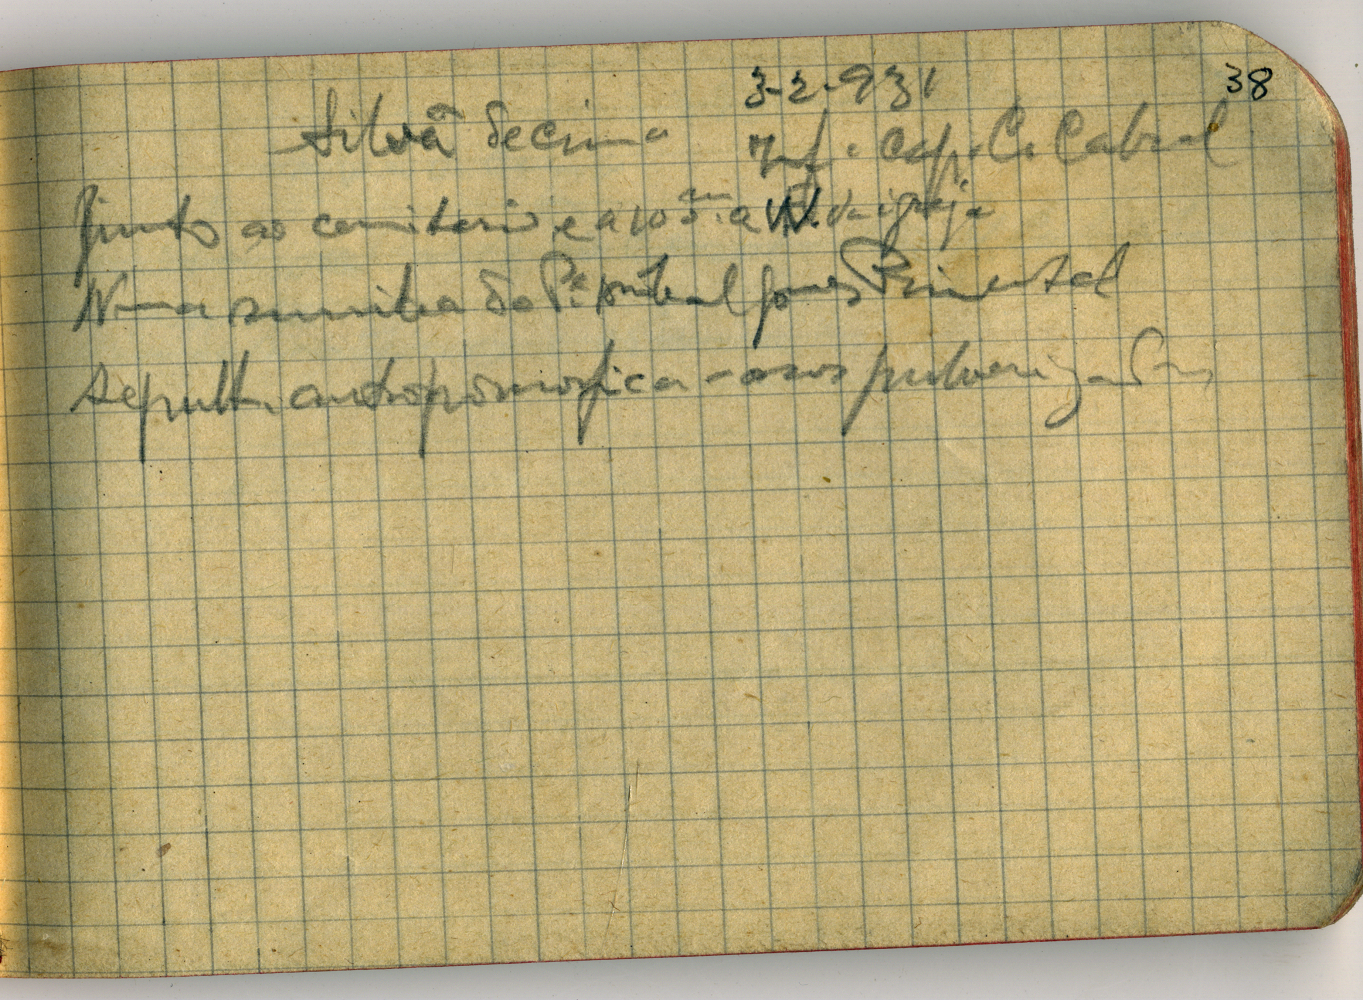 38
3-2-931
Silvã de cima Inf. Cap. C. Cabral
Junto ao cemiterio e a 10 m. a W. da igreja
Numa sumiba do P.e Gomes Pimentel
Sepult. antropomorfica - ossos pulverizados